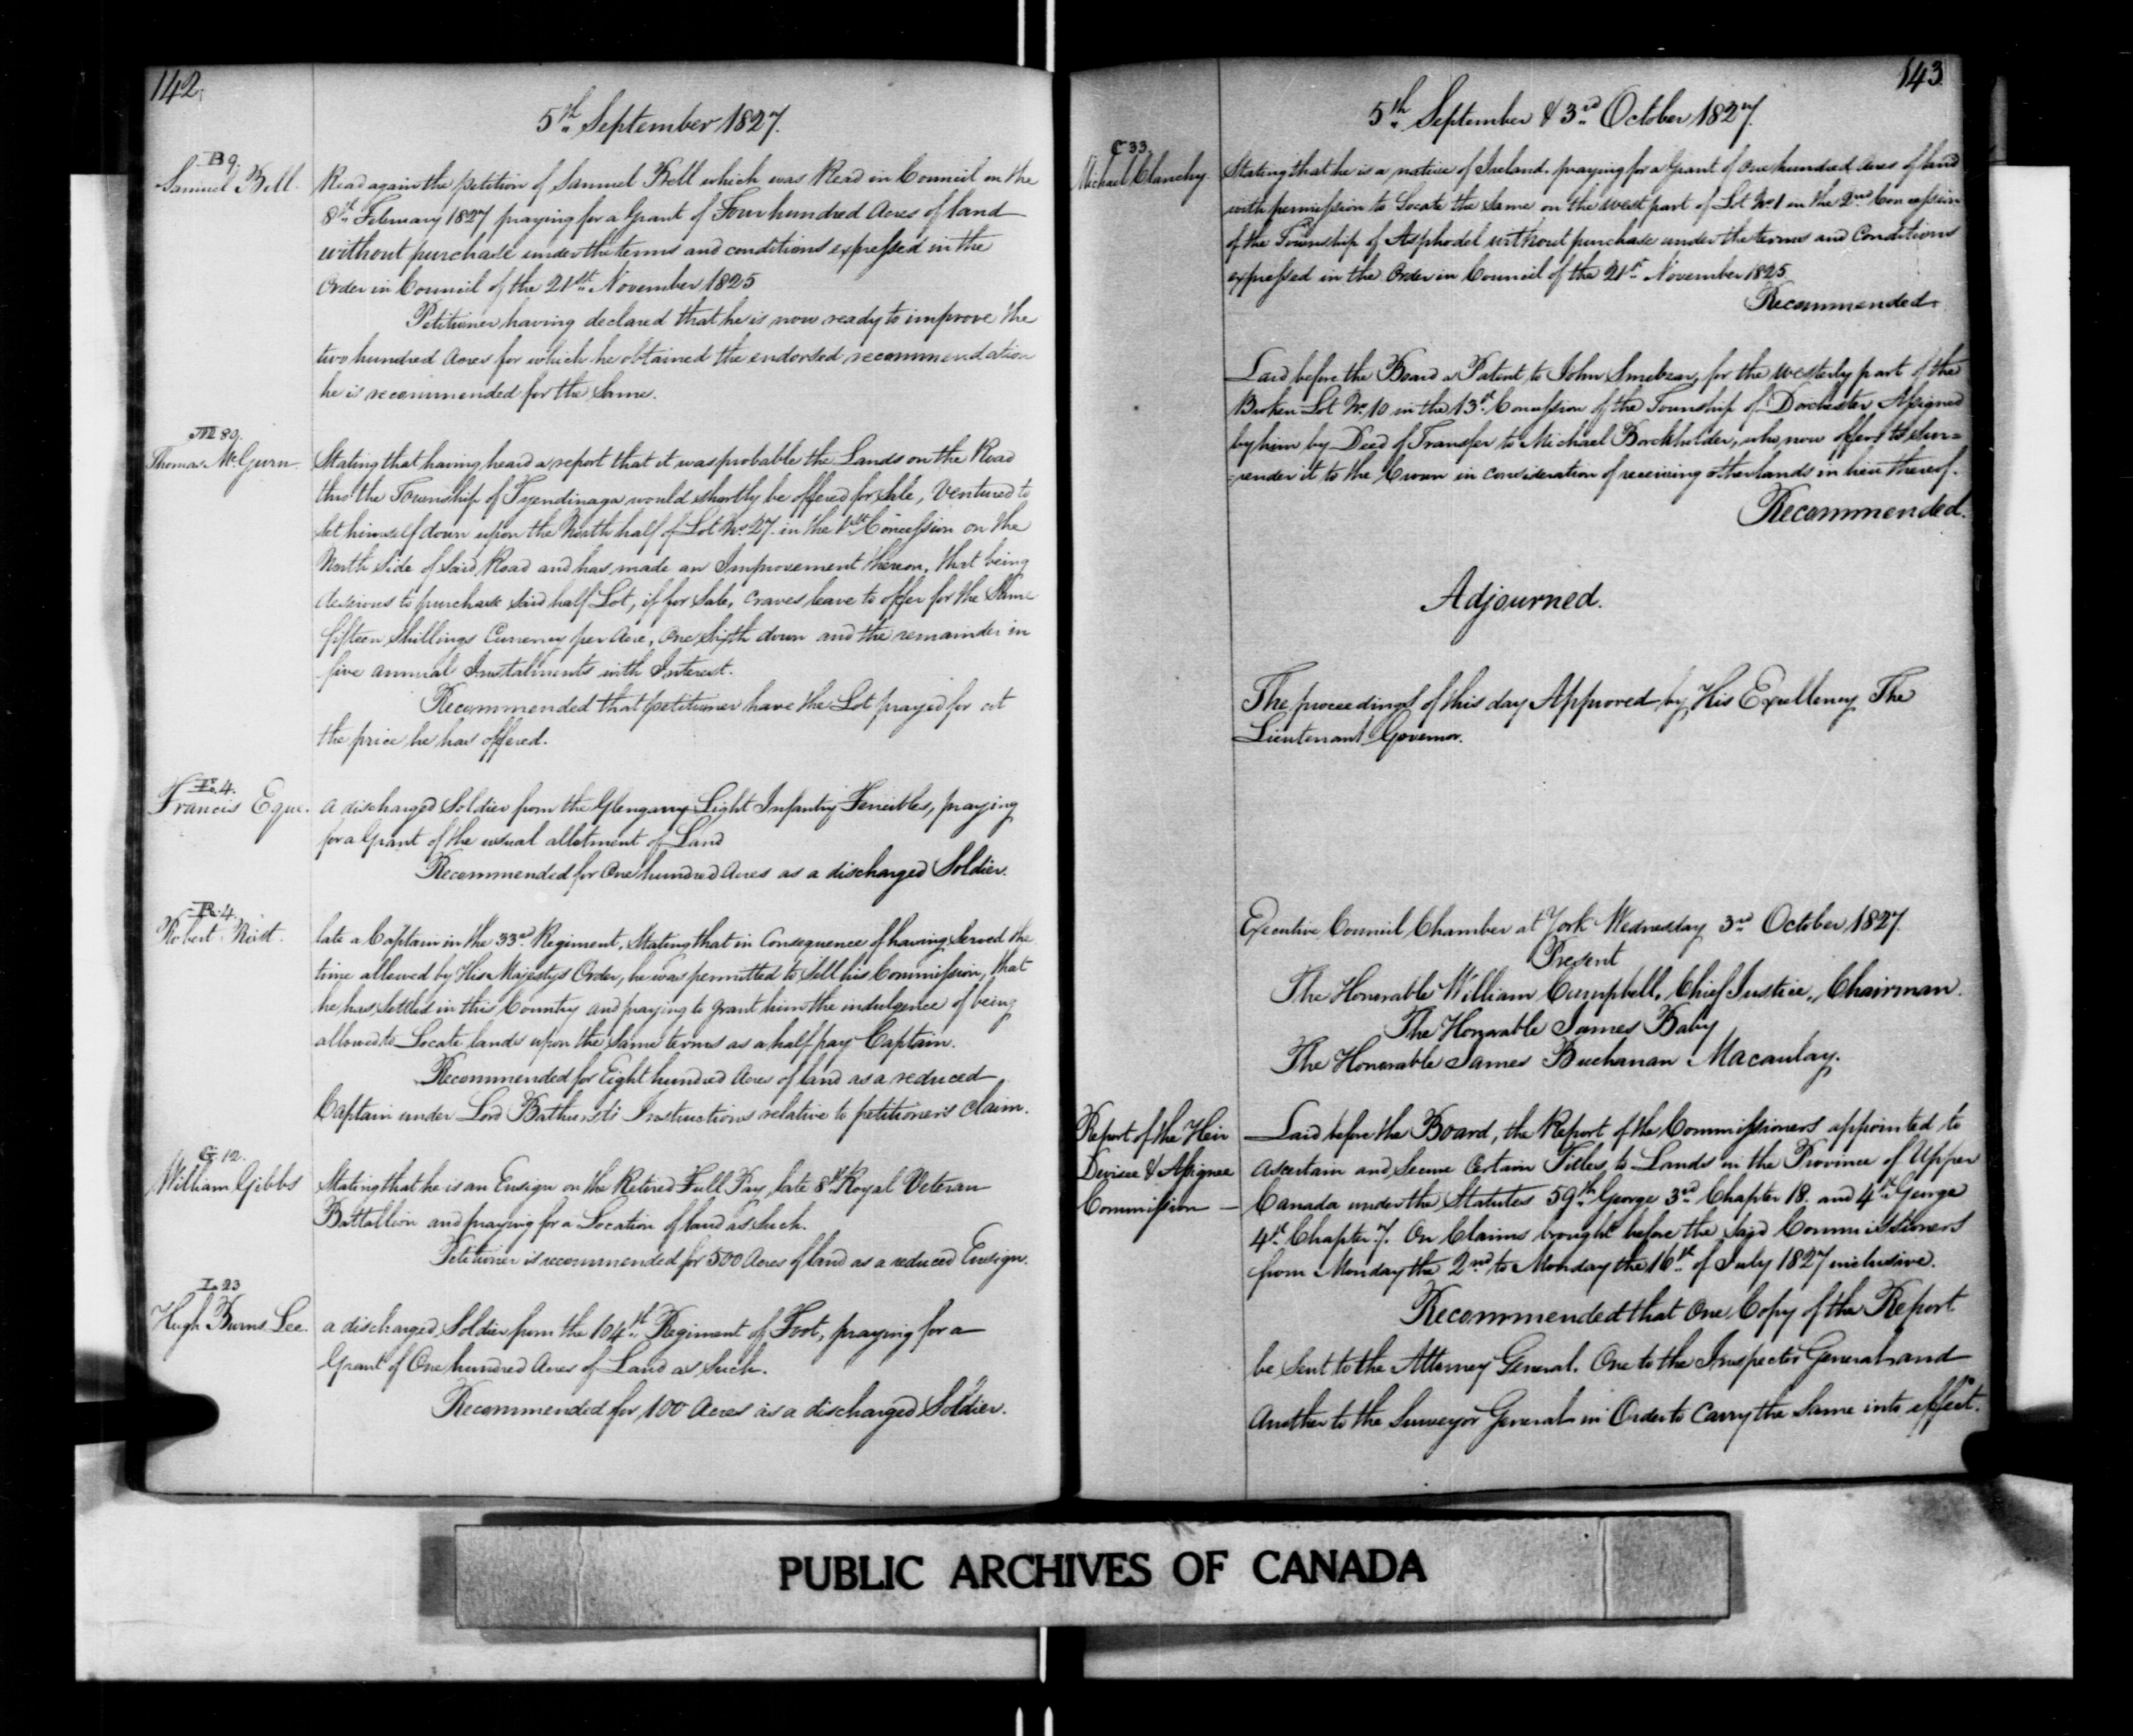 142.
5th September 1827.
B 9.
Samuel Bell.
Read again the petition of Samuel Bell which was Read in Council on the
8th February 1827 praying for a Grant of Four hundred Acres of land
without purchase under the terms and conditions expressed in the
Order in Council of the 21st November 1825
Petitioner having declared that he is now ready to improve the
two hundred Acres for which he obtained the endorsed recommendation
he is recommended for the Same.
M 89.
Thomas McGurn.
Stating that having heard a report that it was probable the Lands on the Road
thro' the Township of Tyendinaga would shortly be offered for Sale, Ventured to
set himself down upon the North half of Lot No. 27. in the 1st Concession on the
North Side of Said Road and has made an Improvement thereon, that being
desirous to purchase said half Lot, if for Sale, craves leave to offer for the Same
fifteen Shillings Currency per Acre, One Sixth down and the remainder in
five annual Instalments with Interest.
Recommended that petitioner have the Lot prayed for at
the price he has offered.
E. 4.
Francis Egue.
A discharged Soldier from the Glengarry Light Infantry Fencibles, praying
for a Grant of the usual allotment of Land
Recommended for One hundred Acres as a discharged Soldier.
R. 4.
Robert Roist.
late a Captain in the 33rd Regiment, Stating that in Consequence of having Served the
time allowed by His Majesty's Order, he was permitted to Sell his Commission, that
he has settled in this Country and praying to grant him the indulgence of being
allowed to Locate lands upon the Same terms as a half pay Captain.
Recommended for Eight hundred Acres of land as a reduced
Captain under Lord Bathurst's Instructions relative to petitioner's Claim.
G. 12.
William Gibbs
Stating that he is an Ensign on the Retired Full Pay, late 8th Royal Veteran
Battallion and praying for a Location of land as Such.
Petitioner is recommended for 500 Acres of land as a reduced Ensign.
L. 23
Hugh Burns Lee.
a discharged Soldier from the 104th Regiment of Foot, praying for a
Grant of One hundred Acres of Land as Such.
Recommended for 100 Acres as a discharged Soldier.
143
5th September & 3rd October 1827.
C 33.
Michael Clanchy.
Stating that he is a native of Ireland. praying for a Grant of One hundred Acres of land
with permission to Locate the Same on the West part of Lot No 1 in the 2nd Concession
of the Township of Asphodel without purchase under the terms and Conditions
expressed in the Order in Council of the 21st November 1825.
Recommended.
Laid before the Board a Patent to John for the Westerly part of the
Broken Lot No. 10 in the 13th Concession of the Township of Dorchester Assigned
by him by Deed of Transfer to Michael Borckholder, who now offers to Sur=
=render it to the Crown in consideration of receiving other lands in lieu thereof.
Recommended.
Adjourned.
The proceedings of this day Approved by His Excellency The
Lieutenant Governor.
Executive Council Chamber at York Wednesday 3rd October 1827.
Present
The Honorable William Campbell, Chief Justice, Chairman.
The Honorable James Baby
The Honorable James Buchanan Macaulay.
Report of the Heir
Devisee & Assignee
Commission —
Laid before the Board, the Report of the Commissioners appointed to
ascertain and Secure Certain Titles to Lands in the Province of Upper
Canada under the Statutes 59th George 3rd Chapter 18. and 4th George
4th Chapter 7. On Claims brought before the Said Commissioners
from Monday the 2nd to Monday the 16th of July 1827 inclusive.
Recommended that One Copy of the Report
be Sent to the Attorney General. One to the Inspector General and
Another to the Surveyor General in Order to Carry the Same into effect.
PUBLIC ARCHIVES OF CANADA